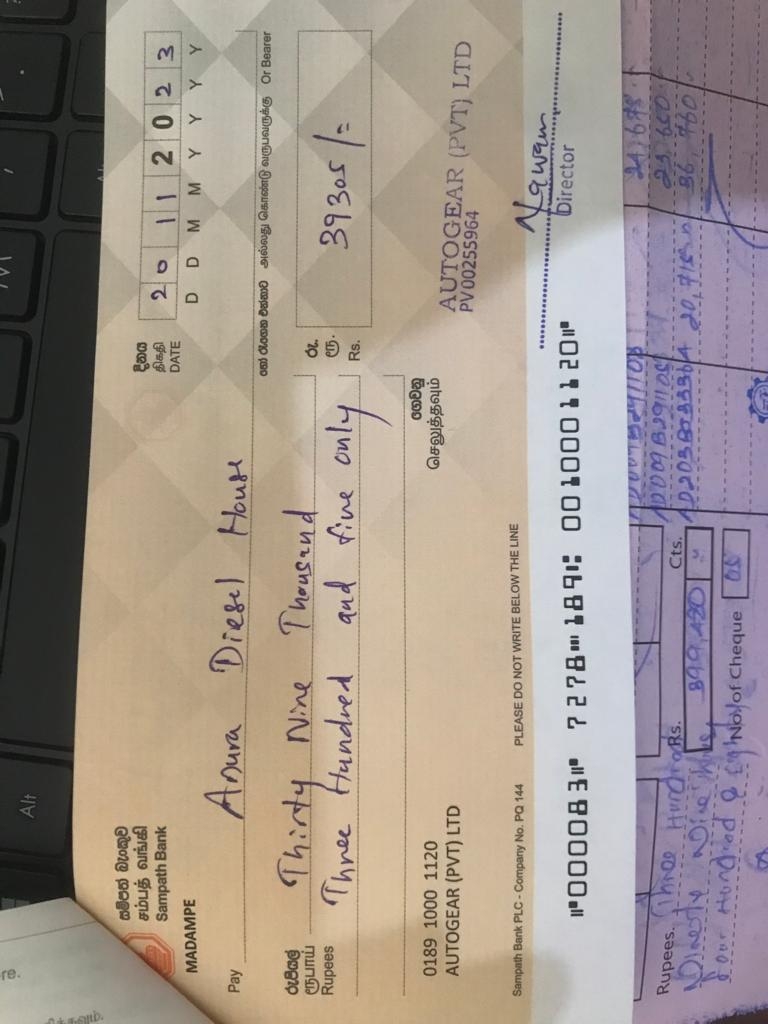 සම්පත් බැංකුව
சம்பத் வங்கி
Sampath Bank
MADAMPE
දිනය
திகதி
DATE
20 11 2023
D D M M Y Y Y Y
Pay Anura Diesel House
හෝ රැගෙන එන්නාට அல்லது கொண்டு வருபவருக்கு Or Bearer
රුපියල්
ரூபாய்
Rupees
Thirty Nine Thousand
Three Hundred and five only
රු.
ரூ.
Rs.
39305/=
0189 1000 1120
AUTOGEAR (PVT) LTD
ගෙවනු
செலுத்தவும்
AUTOGEAR (PVT) LTD
PV00255964
Director
Sampath Bank PLC - Company No. PQ 144 PLEASE DO NOT WRITE BELOW THE LINE
⑈000083⑈ 7278⑉189⑆ 0010001120⑈
Rupees. Three Hundred
Rs. Cts.
399,420
No. of Cheque
Alt
re.